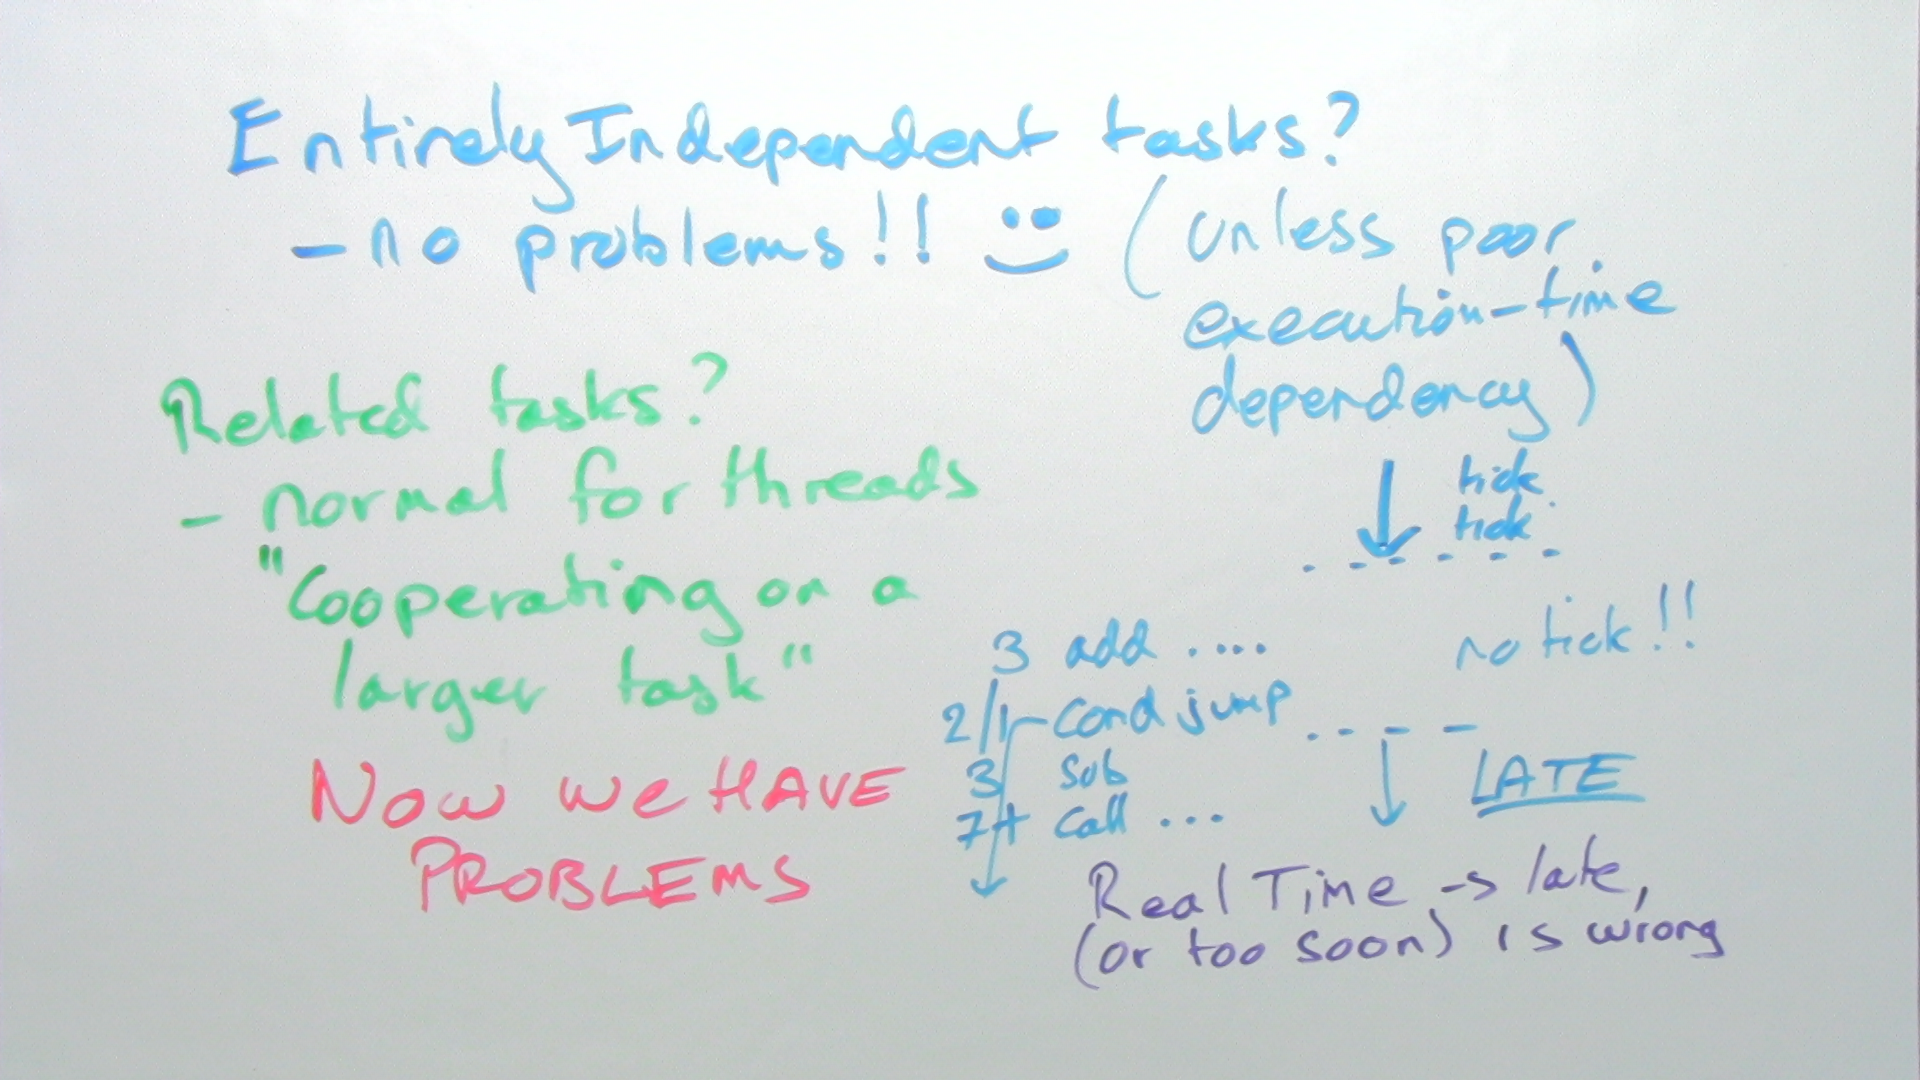 Entirely Independent tasks?
- no problems!! (unless poor
execution-time
dependency)
Related tasks?
- normal for threads
"Cooperating on a
larger task"
NOW WE HAVE
PROBLEMS
tick
tick
no tick!!
3 add ....
2/1 cond jump
3 sub
7+ call ...
LATE
Real Time -> late,
(or too soon) is wrong